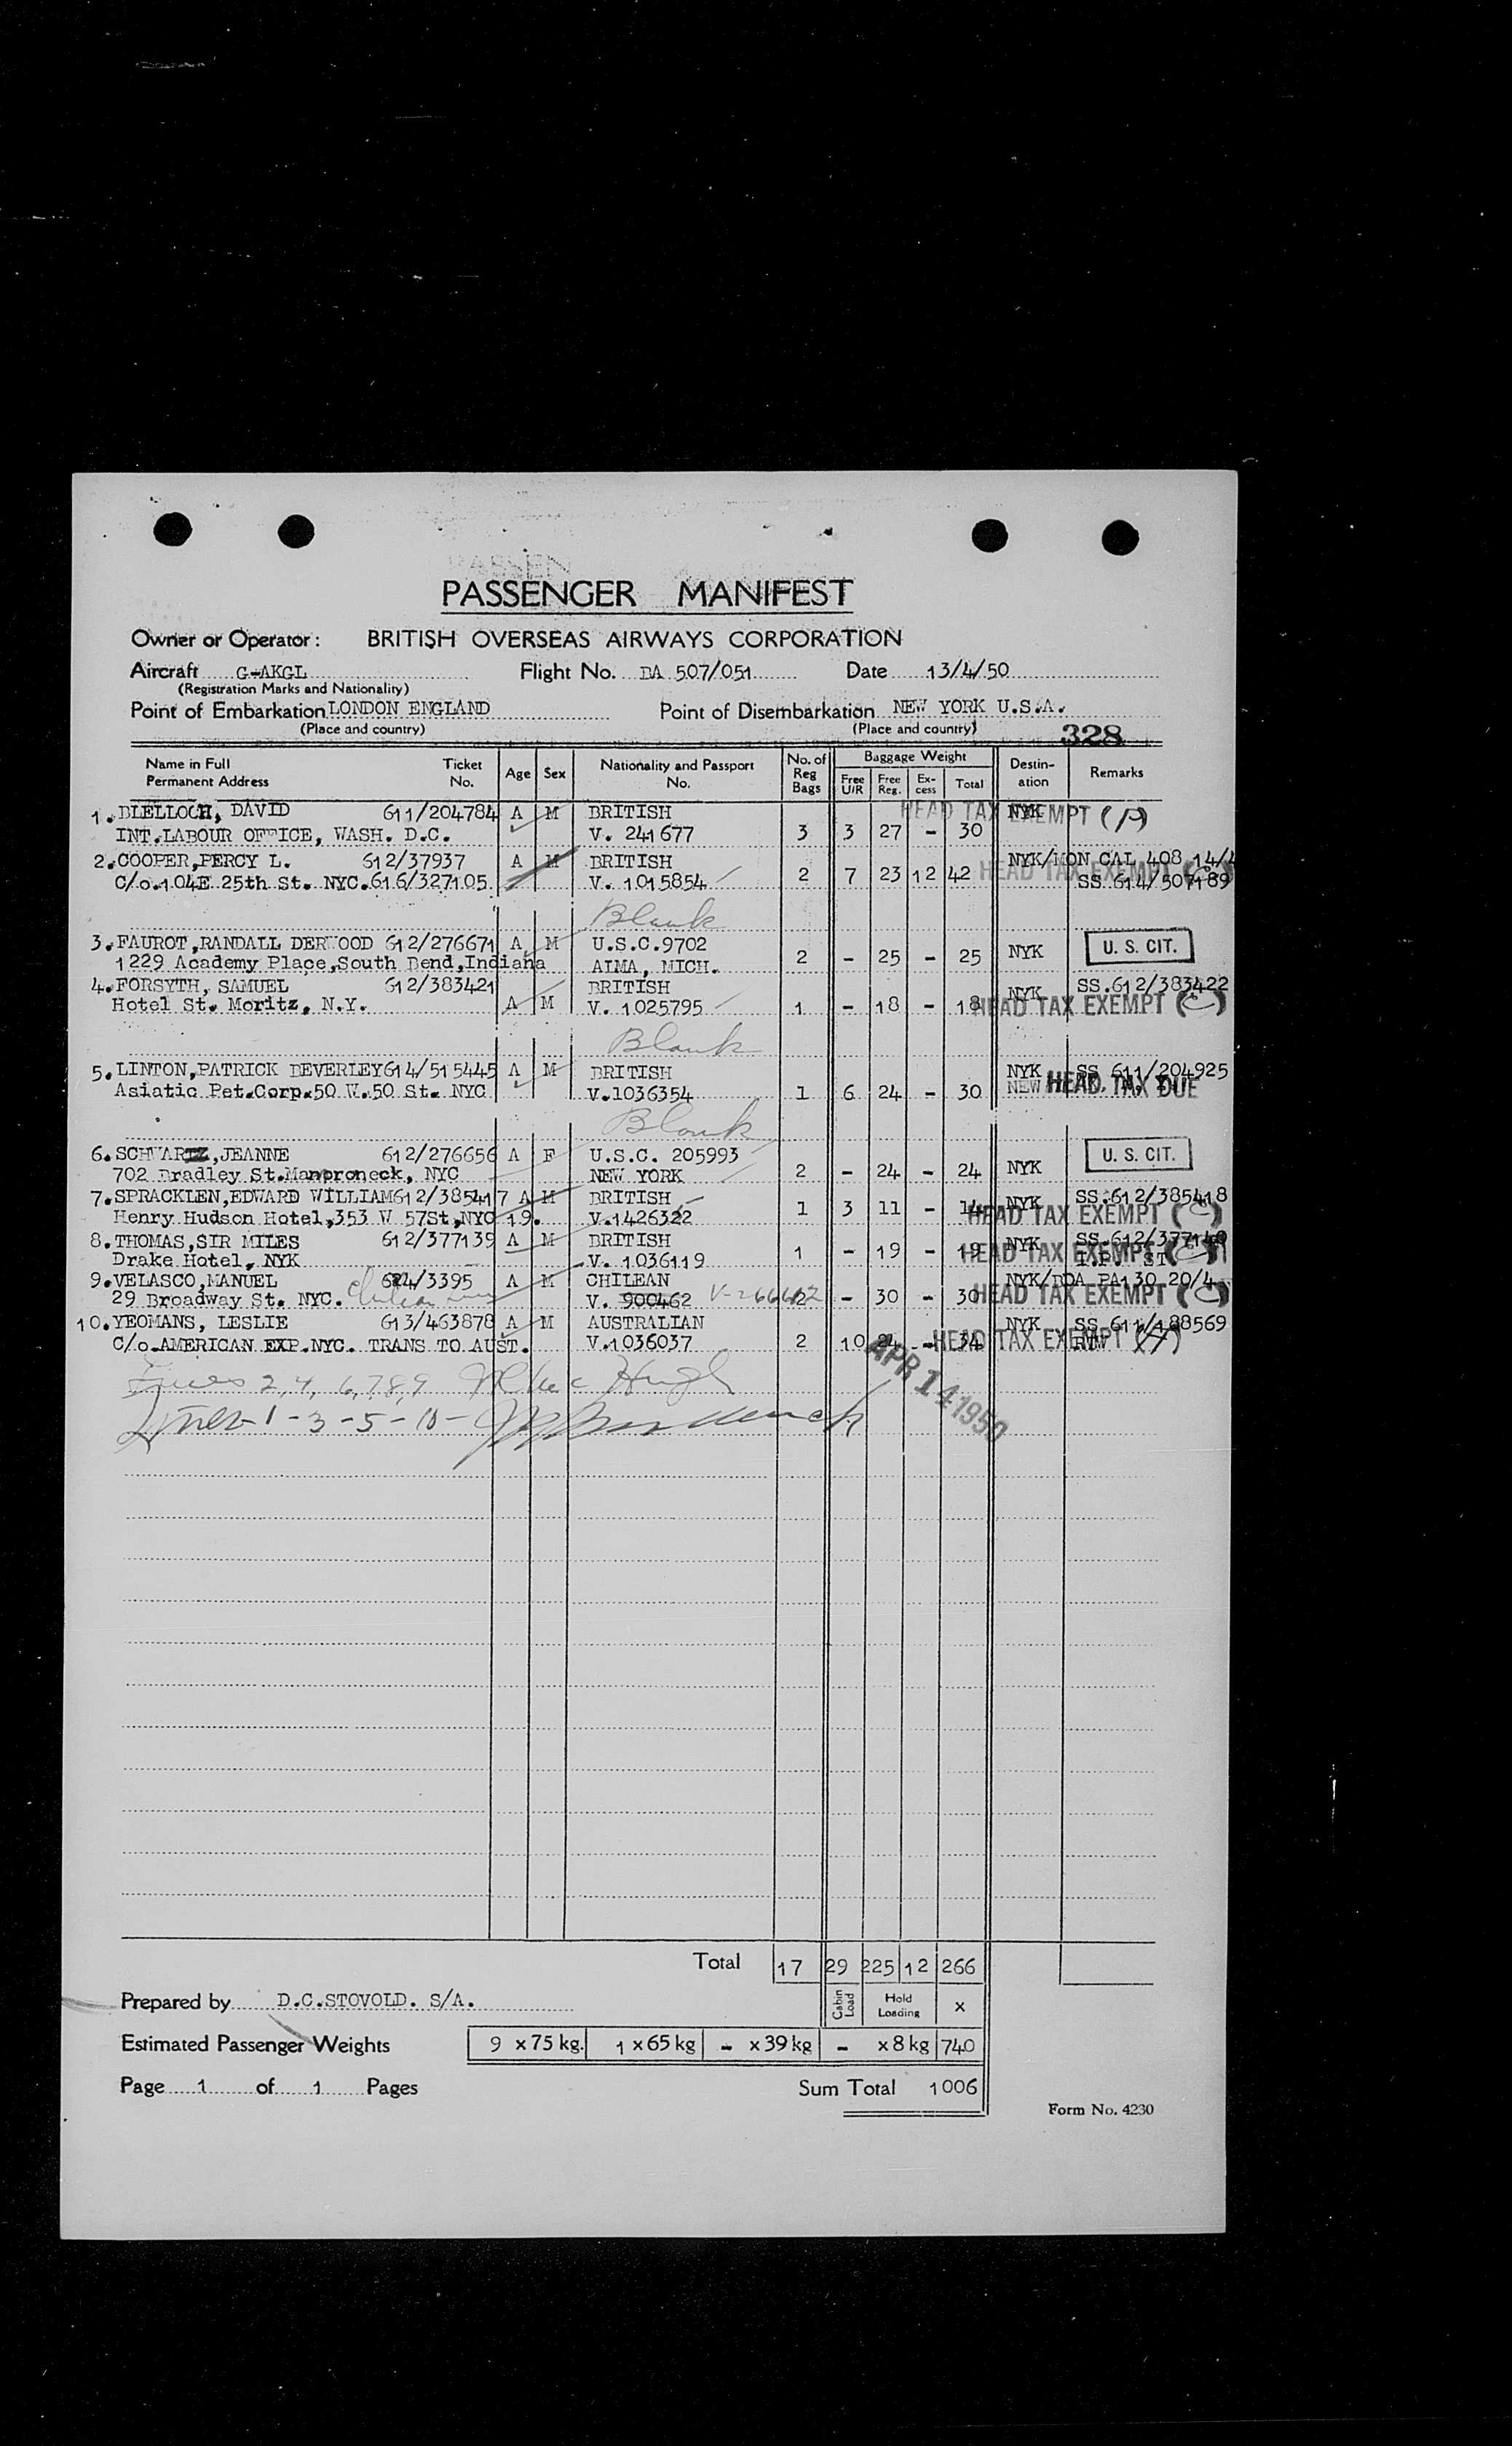 PASSENGER MANIFEST
Owner or Operator: BRITISH OVERSEAS AIRWAYS CORPORATION
Aircraft G-AKGL Flight No. BA 507/051 Date 13/4/50
(Registration Marks and Nationality)
Point of Embarkation LONDON ENGLAND Point of Disembarkation NEW YORK U.S.A.
(Place and country) (Place and country)
328
Name in Full Permanent Address Ticket No. Age Sex Nationality and Passport No. No. of Reg Bags Baggage Weight Free U/R Free Reg. Ex-cess Total Destin-ation Remarks
1. BLELLOCH, DAVID 611/204784 A M BRITISH NYK HEAD TAX EXEMPT
INT.LABOUR OFFICE, WASH. D.C. V. 241677 3 3 27 - 30
2. COOPER,PERCY L. 612/37937 A M BRITISH NYK/MON CAL 408 14/4
C/o.104E 25th St. NYC.616/327105 V. 1015854 2 7 23 12 42 HEAD TAX EXEMPT SS 614/507189
Blank
3. FAUROT,RANDALL DERWOOD 612/276671 A M U.S.C.9702 2 - 25 - 25 NYK U. S. CIT.
1229 Academy Place,South Bend,Indiana ALMA, MICH.
4. FORSYTH, SAMUEL 612/383421 BRITISH NYK SS.612/383422
Hotel St. Moritz, N.Y. A M V. 1025795 1 - 18 - 18 HEAD TAX EXEMPT
Blank
5. LINTON,PATRICK BEVERLEY614/515445 A M BRITISH NYK SS 611/204925
Asiatic Pet.Corp.50 W.50 St. NYC V.1036354 1 6 24 - 30 NEW HEAD TAX DUE
Blank
6. SCHWARTZ,JEANNE 612/276656 A F U.S.C. 205993 U. S. CIT.
702 Bradley St.Mamproneck, NYC NEW YORK 2 - 24 - 24 NYK
7. SPRACKLEN,EDWARD WILLIAM612/385417 A M BRITISH NYK SS.612/385418
Henry Hudson Hotel,353 W 57St,NYC 19. V.1426322 1 3 11 - 14 HEAD TAX EXEMPT
8. THOMAS,SIR MILES 612/377139 A M BRITISH NYK SS.612/377140
Drake Hotel, NYK V. 1036119 1 - 19 - 19 HEAD TAX EXEMPT
9. VELASCO,MANUEL 624/3395 A M CHILEAN NYK/BOA PA 130 20/4
29 Broadway St. NYC. V. 900462 2 - 30 - 30 HEAD TAX EXEMPT
10. YEOMANS, LESLIE 613/463878 A M AUSTRALIAN NYK SS 611/188569
C/o.AMERICAN EXP.NYC. TRANS TO AUST. V.1036037 2 10 24 - 34 HEAD TAX EXEMPT RTW
2, 4, 6, 7, 8, 9
Lines 1-3-5-10-
APR 14 1950
Total 17 29 225 12 266
Prepared by D.C.STOVOLD. S/A. Cabin Load Hold Loading x
Estimated Passenger Weights 9 x 75 kg. 1 x 65 kg - x 39 kg - x 8 kg 740
Page 1 of 1 Pages Sum Total 1006
Form No. 4230